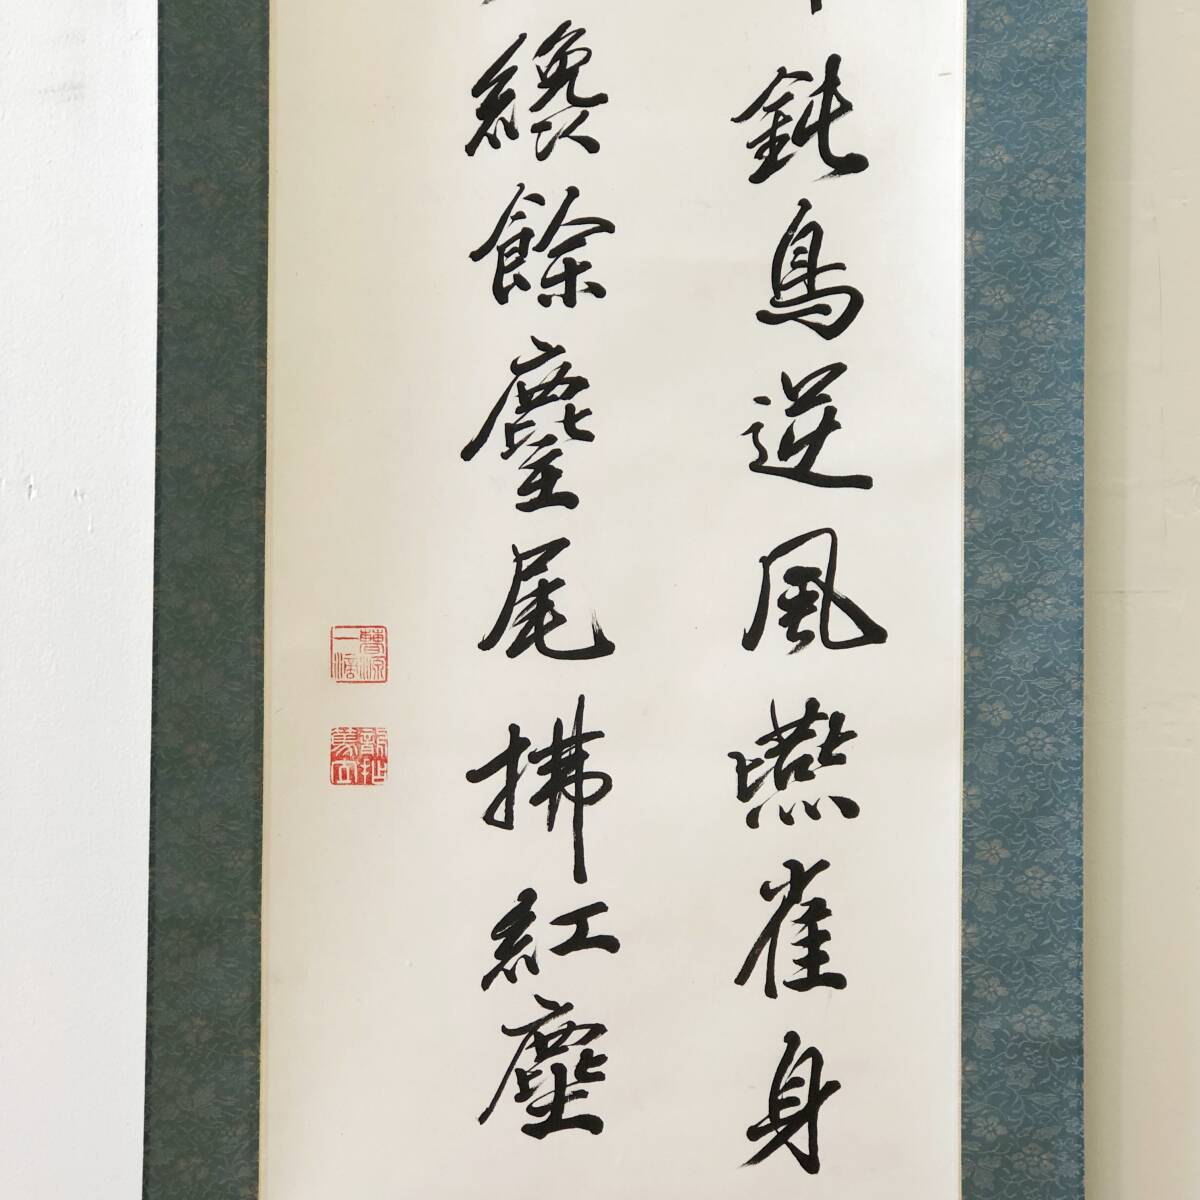 鈍鳥逆風燕雀身
纔餘麈尾拂紅塵